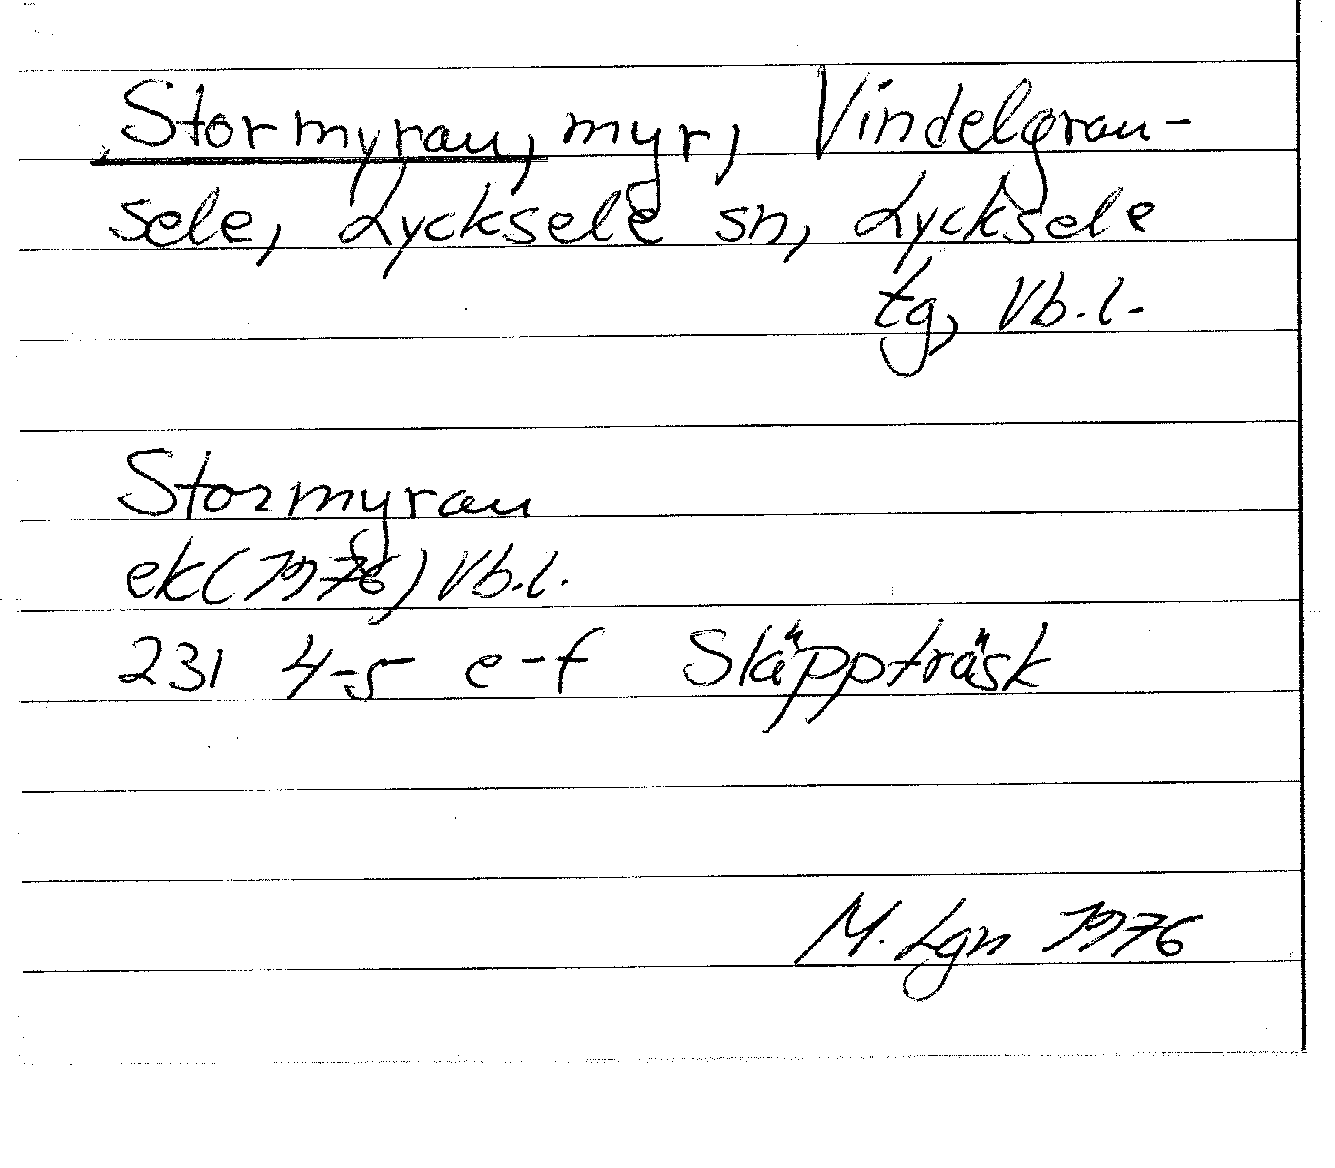 Stormyran, myr, Vindelgran-
sele, Lycksele sn, Lycksele
tg, Vb.l.
Stormyran
ek(1976) Vb.l.
231 4-5 e-f Släppträsk
M. Lgn 1976